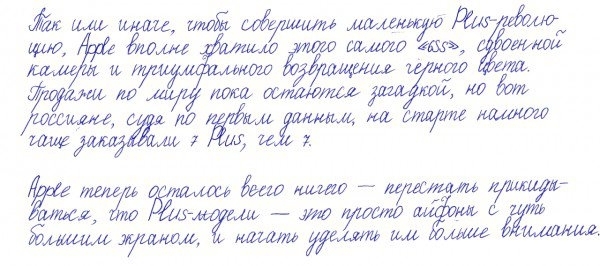 Так или иначе, чтобы совершить маленькую Plus-револю-
цию, Apple вполне хватило этого самого «6SS», сдвоенной
камеры и триумфального возвращения черного цвета.
Продажи по миру пока остаются загадкой, но вот
россияне, судя по первым данным, на старте намного
чаще заказывали 7 Plus, чем 7.
Apple теперь осталось всего ничего — перестать прикиды-
ваться, что Plus-модели — это просто айфоны с чуть
большим экраном, и начать уделять им больше внимания.